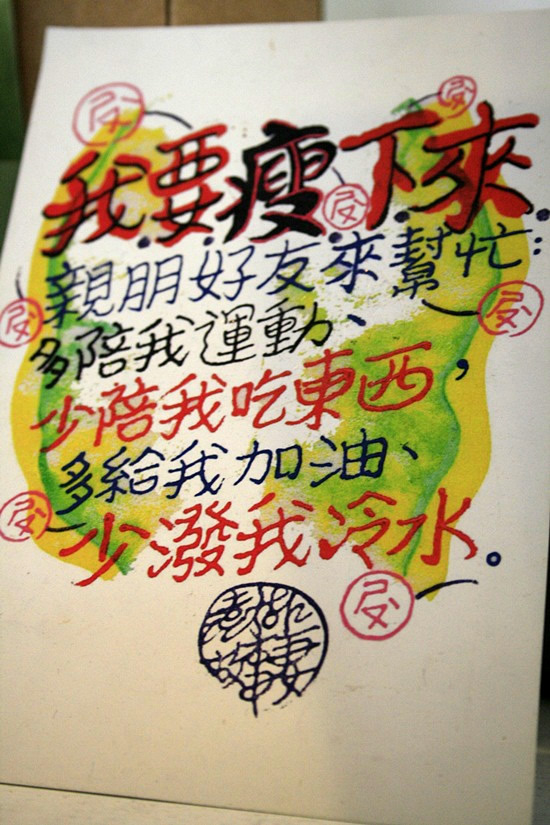 我要瘦下來
親朋好友來幫忙：
多陪我運動、
少陪我吃東西，
多給我加油、
少潑我冷水。